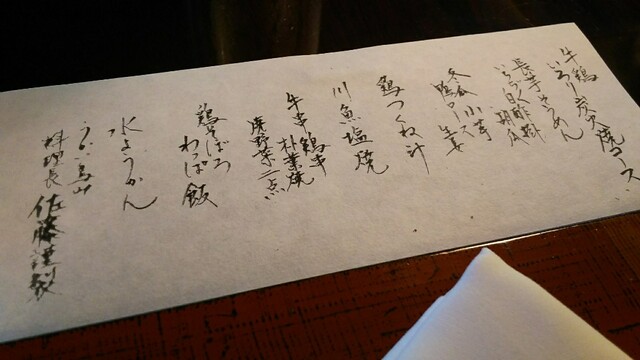 牛鶏
いろり炭火焼コース
長芋そうめん
いちじく白酢掛
胡瓜
冬瓜 小芋
鴨ロース 生姜
鶏つくね汁
川魚塩焼
牛串 鶏串
朴葉焼
焼野菜二点
鶏そぼろ
わっぱ飯
水ようかん
うかい鳥山
料理長 佐藤謹製